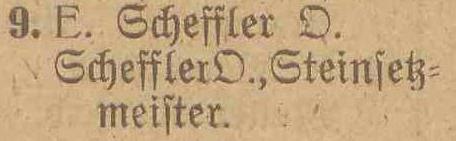 9. E. Scheffler O.
Scheffler O., Steinsetz-
meister.